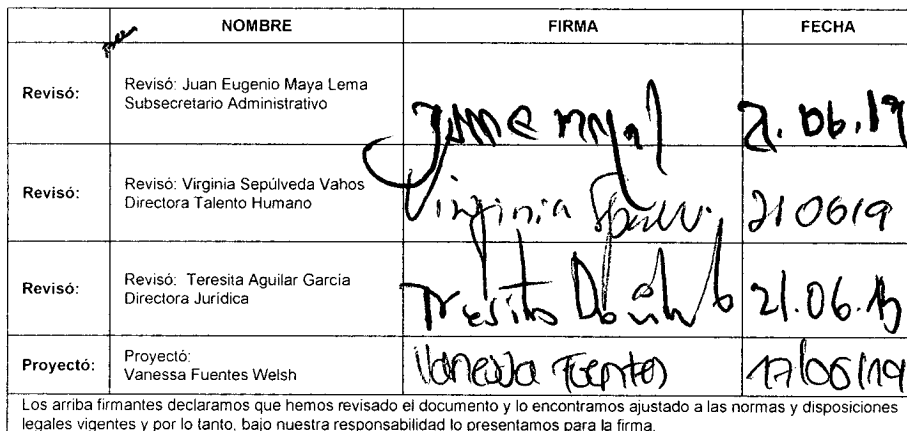 NOMBRE FIRMA FECHA
Revisó: Revisó: Juan Eugenio Maya Lema
Subsecretario Administrativo
21.06.19
Revisó: Revisó: Virginia Sepúlveda Vahos
Directora Talento Humano
Virginia 210619
Revisó: Revisó: Teresita Aguilar García
Directora Jurídica
21.06.19
Proyectó: Proyectó:
Vanessa Fuentes Welsh
Vanessa Fuentes 17/06/19
Los arriba firmantes declaramos que hemos revisado el documento y lo encontramos ajustado a las normas y disposiciones
legales vigentes y por lo tanto, bajo nuestra responsabilidad lo presentamos para la firma.